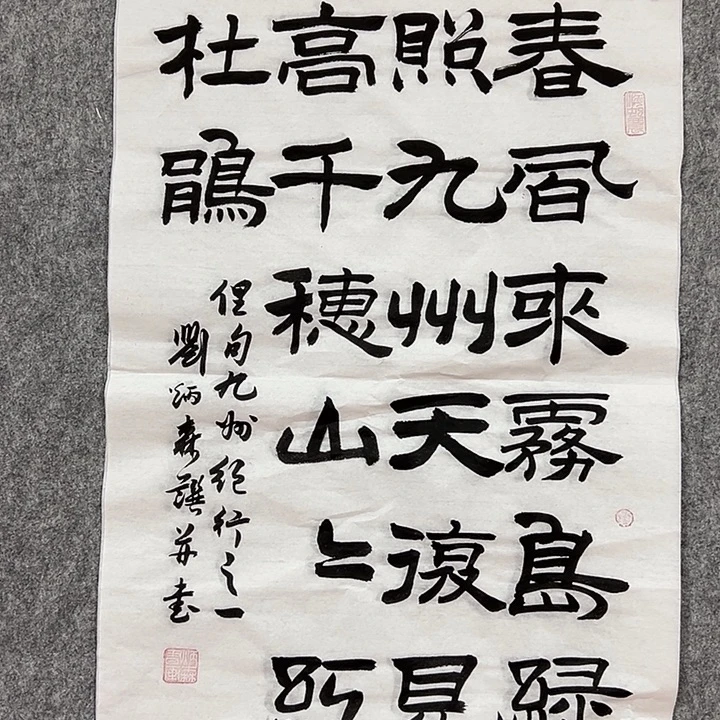 春風來霧島緑
照九州天復見
高千穂山々
杜鵑
俚句九州紀行之一
劉炳森撰并書